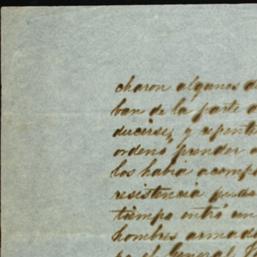 charon algunos d
ban de la parte d
ducirse, y repenti
ordenó prender a
los habia acompa
resistencia
tiempo entró un
hombres armado
General